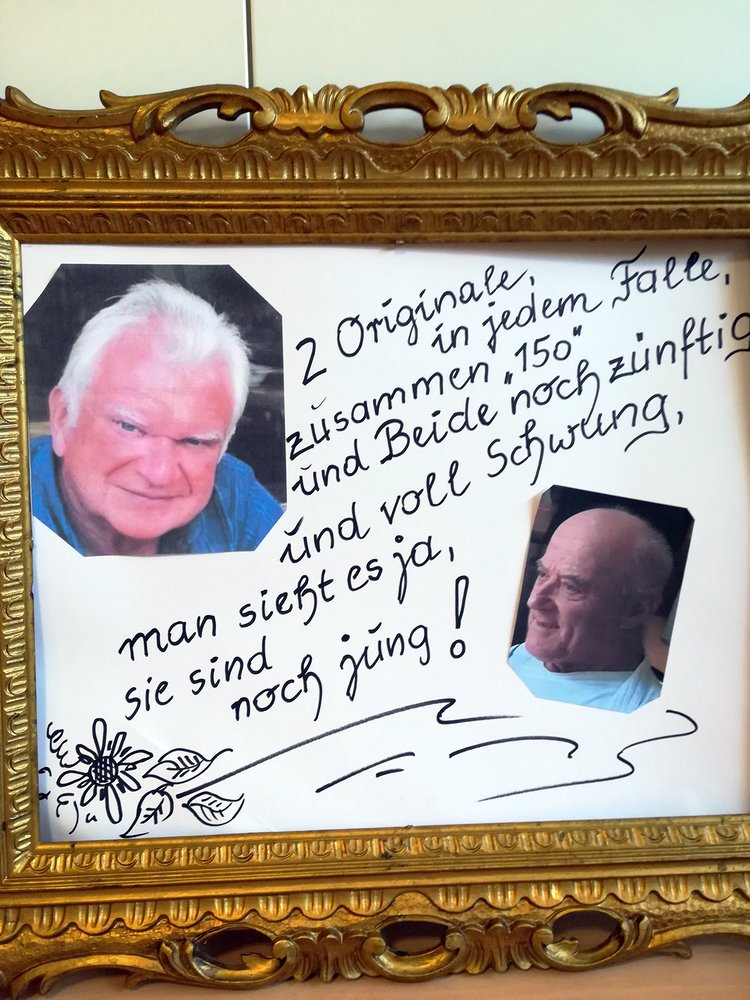 2 Originale,
in jedem Falle,
zusammen "150"
und Beide noch zünftig
und voll Schwung,
man sieht es ja,
sie sind
noch jung!